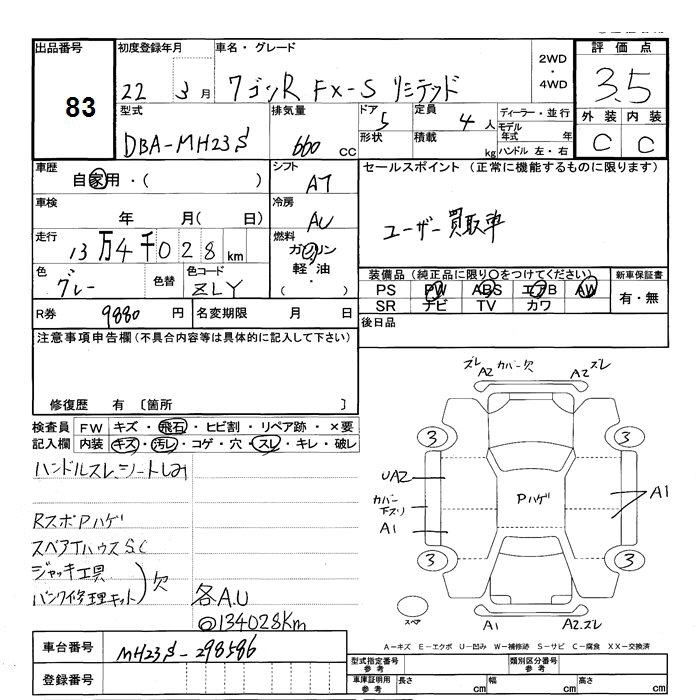 出品番号
83
初度登録年月
22 年 3 月
車名・グレード
ワゴンR FX-S リミテッド
2WD
・
4WD
評価点
3.5
外装 内装
C C
型式
DBA-MH23S
排気量
660 cc
ドア
5
形状
定員
4 人
積載
kg
ディーラー・並行
モデル年式 年
ハンドル 左・右
車歴
自家用・( )
シフト
AT
セールスポイント (正常に機能するものに限ります)
ユーザー買取車
車検
年 月( 日)
冷房
AU
走行
13万4千028 km
燃料
ガソリン
軽油
・
( )
色
グレー
色替
色コード
ZLY
装備品 (純正品に限り○をつけてください)
PS PW ABS エアB AW
SR ナビ TV カワ
新車保証書
有・無
R券 9880 円
名変期限 月 日
後日品
注意事項申告欄 (不具合内容等は具体的に記入して下さい)
修復歴 有 〔箇所 〕
検査員 FW キズ・飛石・ヒビ割・リペア跡・×要
記入欄 内装 キズ・汚レ・コゲ・穴・スレ・キレ・破レ
ハンドルスレ、シートしみ
RスポPハゲ
スペアTハウスS.C
ジャッキ工具
パンク修理キット
欠
各A.U
@134028Km
ズレ A2 カバー欠 A2 ズレ
3 3
UA2
カバー
下スリ
A1
Pハゲ
A1
3 3
スペア
A1 A2.ズレ
A－キズ E－エクボ U－凹み W－補修跡 S－サビ C－腐食 XX－交換済
車台番号
MH23S-298586
登録番号
型式指定番号
参考
類別区分番号
参考
車庫証明用
参考
長さ cm
幅 cm
高さ cm